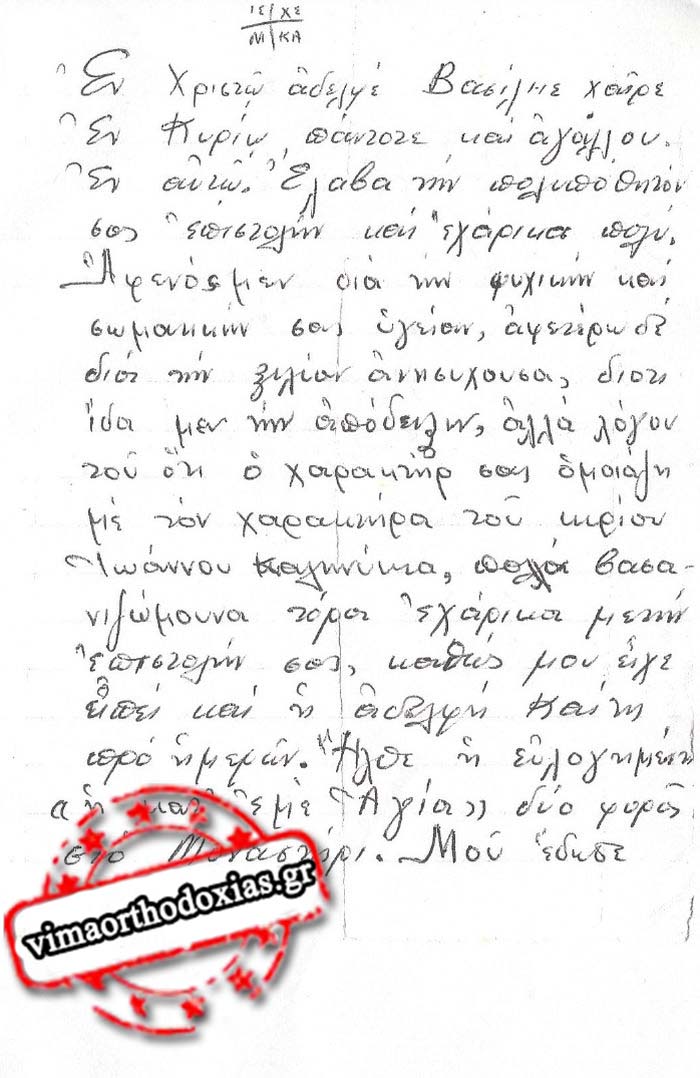 ΙΣ ΧΣ
Μ ΚΑ
Ἐν Χριστῶ ἀδελφέ Βασίλησ χαῖρε
Ἐν Κυρίω πάντοτε καί ἀγάλλου.
Ἐν αὐτῶ. Ἔλαβα τήν πολυπόθητόν
σας ἐπιστολήν καί ἐχάρικα πολύ.
Ἀφενόςμεν διά τήν ψυχικήν καί
σωματικήν σας ὑγείαν, ἀφετέρω δέ
διότι τήν ἀνησυχουσα, διοτι
ἴδα μεν τήν ἀπόδειξιν, ἀλλά λόγου
τοῦ ὅτι ὁ χαρακτήρ σας ὁμοιάζη
μέ τόν χαρακτήρα τοῦ κιρίου
Ἰωάννου πολλά βασα-
νιζώμουνα τόρα ἐχάρικα μετήν
ἐπιστολήν σας, καθώς μου εἶχε
εἰπεί καί ἡ ἀδελφή Καίτη
πρό ἡμερῶν. Ἦλθε ἡ εὐλογημένη
«ἡ κατ' ἐμέ Ἁγία» δύο φοράς
στό Μοναστήρι. Μοῦ ἔδησε
vimaorthodoxias.gr